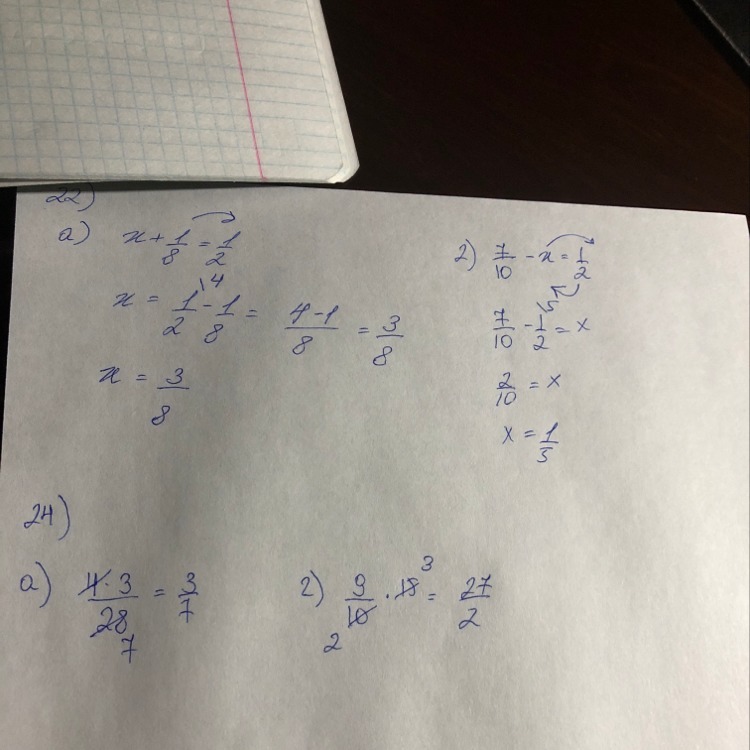 22)
а) x + 1/8 = 1/2
x = 1/2 \4 - 1/8 = (4-1)/8 = 3/8
x = 3/8
2) 7/10 - x = 1/2
7/10 - 1/2 \5 = x
2/10 = x
x = 1/5
24)
а) (4·3)/28 = 3/7
7
2) 9/10 · 15 = 27/2
3
2